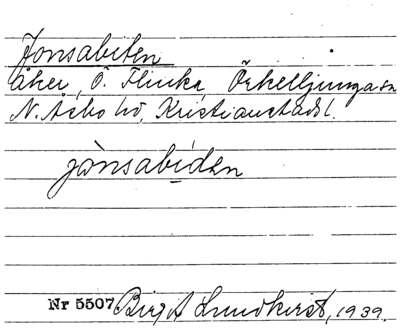 Jonsabiten
åker, Ö. Flinka, Örkelljunga sn
N. Åsbo hd, Kristianstads l.
jònsabídẹn
Nr 5507 Birgit Lundkvist, 1939.